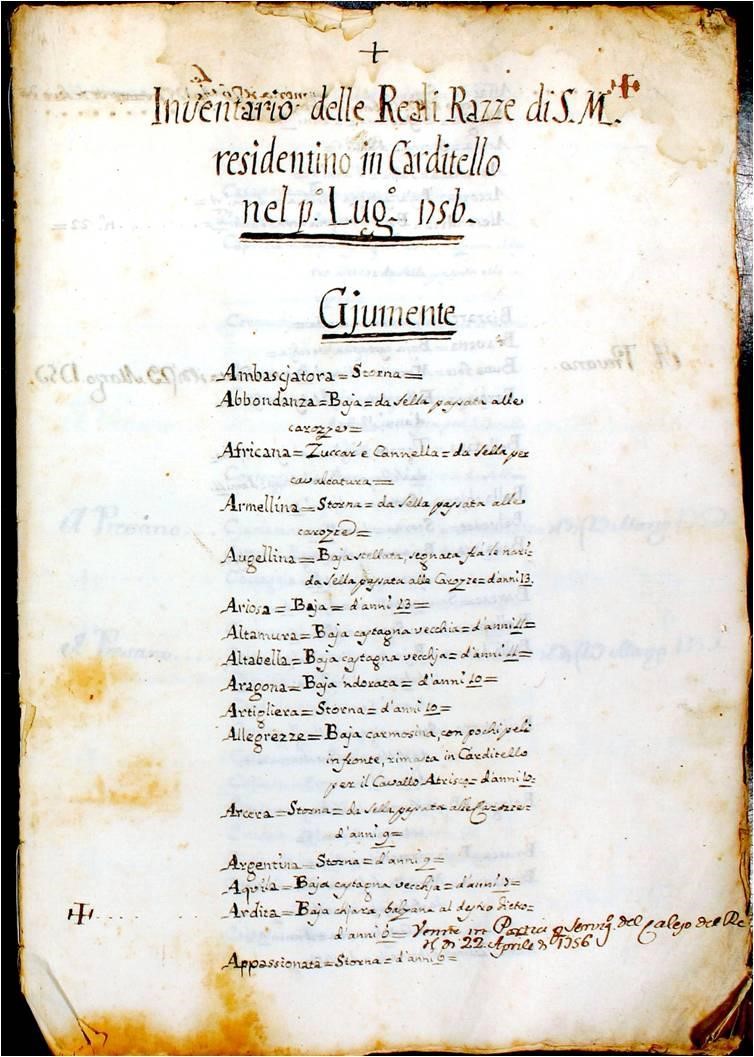 +
Inventario delle Reali Razze di S. M.
residentino in Carditello
nel p.º Lugº 1756
Gjumente
Ambascjatora = Storna =
Abbondanza = Baja = da sella passata alle
carozze =
Africana = Zuccar' e Cannella = da sella per
cavalcatura =
Armellina = Storna = da sella passata alle
carozze =
Augellina = Baja stellata, segnata frà le nari =
da sella passata alle Carozze = d'anni 13.
Ariosa = Baja = d'anni 13 =
Altamura = Baja castagna vecchia = d'anni 11 =
Altabella = Baja castagna vecchja = d'anni 11 =
Aragona = Baja 'ndorata = d'anni 10 =
Artigliera = Storna = d'anni 10 =
Allegrezze = Baja carmosina, con pochi peli
in fronte, rimasta in Carditello
per il Cavallo = d'anni 10 =
Arcera = Storna = da sella passata alle Carozze =
d'anni 9 =
Argentina = Storna = d'anni 9 =
Aquila = Baja castagna vecchja = d'anni 7 =
Ardita = Baja chiara, balzana al destro dietro =
d'anni 6 = Venne in Portici servizº del Calejo del Re
22 Aprile 1756
Appassionata = Storna = d'anni 6 =